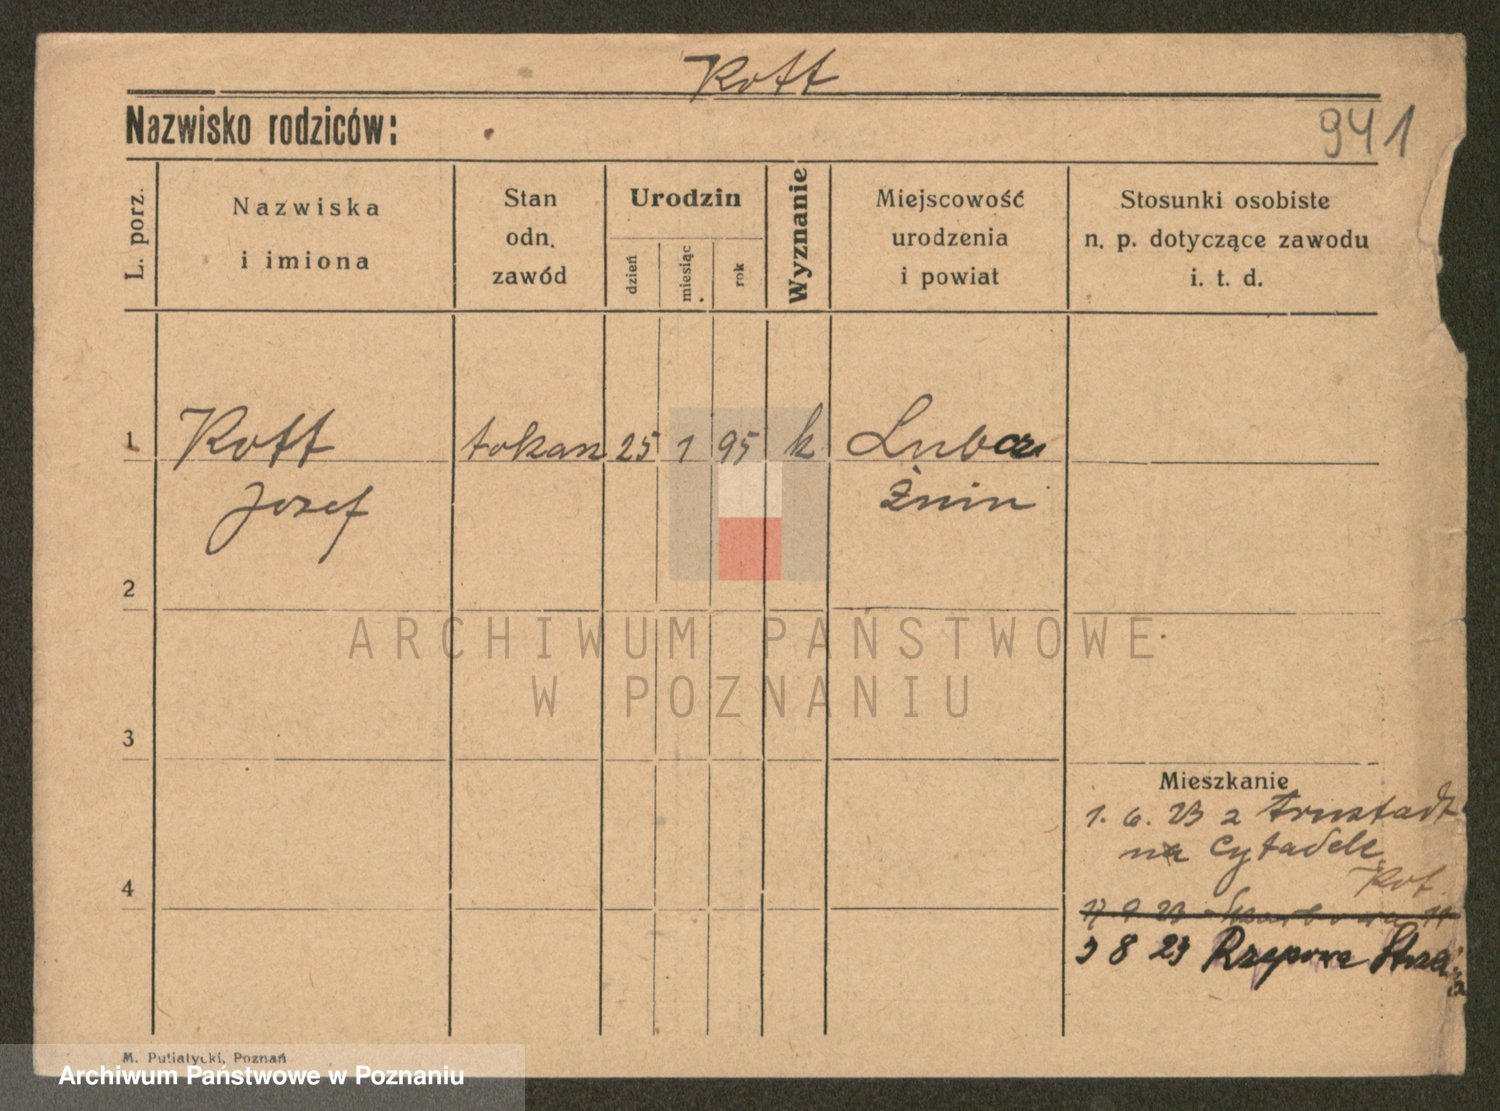 Kott
Nazwisko rodziców:
941
L. porz.
Nazwiska
i imiona
Stan
odn.
zawód
Urodzin
dzień
miesiąc
rok
Wyznanie
Miejscowość
urodzenia
i powiat
Stosunki osobiste
n. p. dotyczące zawodu
i. t. d.
1 Kott tokarz 25 1 95 k Lubcz
Józef Żnin
2
ARCHIWUM PAŃSTWOWE
W POZNANIU
3
Mieszkanie
1. 6. 23 z Arnstadt
na Cytadelę
Kot.
4
3 8 23 Rzepowa
M. Putiatycki, Poznań
Archiwum Państwowe w Poznaniu